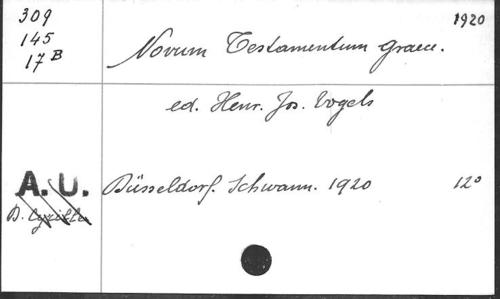 309
145
17 B
1920
Novum Testamentum graece.
ed. Henr. Jos. Vogels
A. U.
Düsseldorf. Schwann. 1920 12°
B. Cyrilla